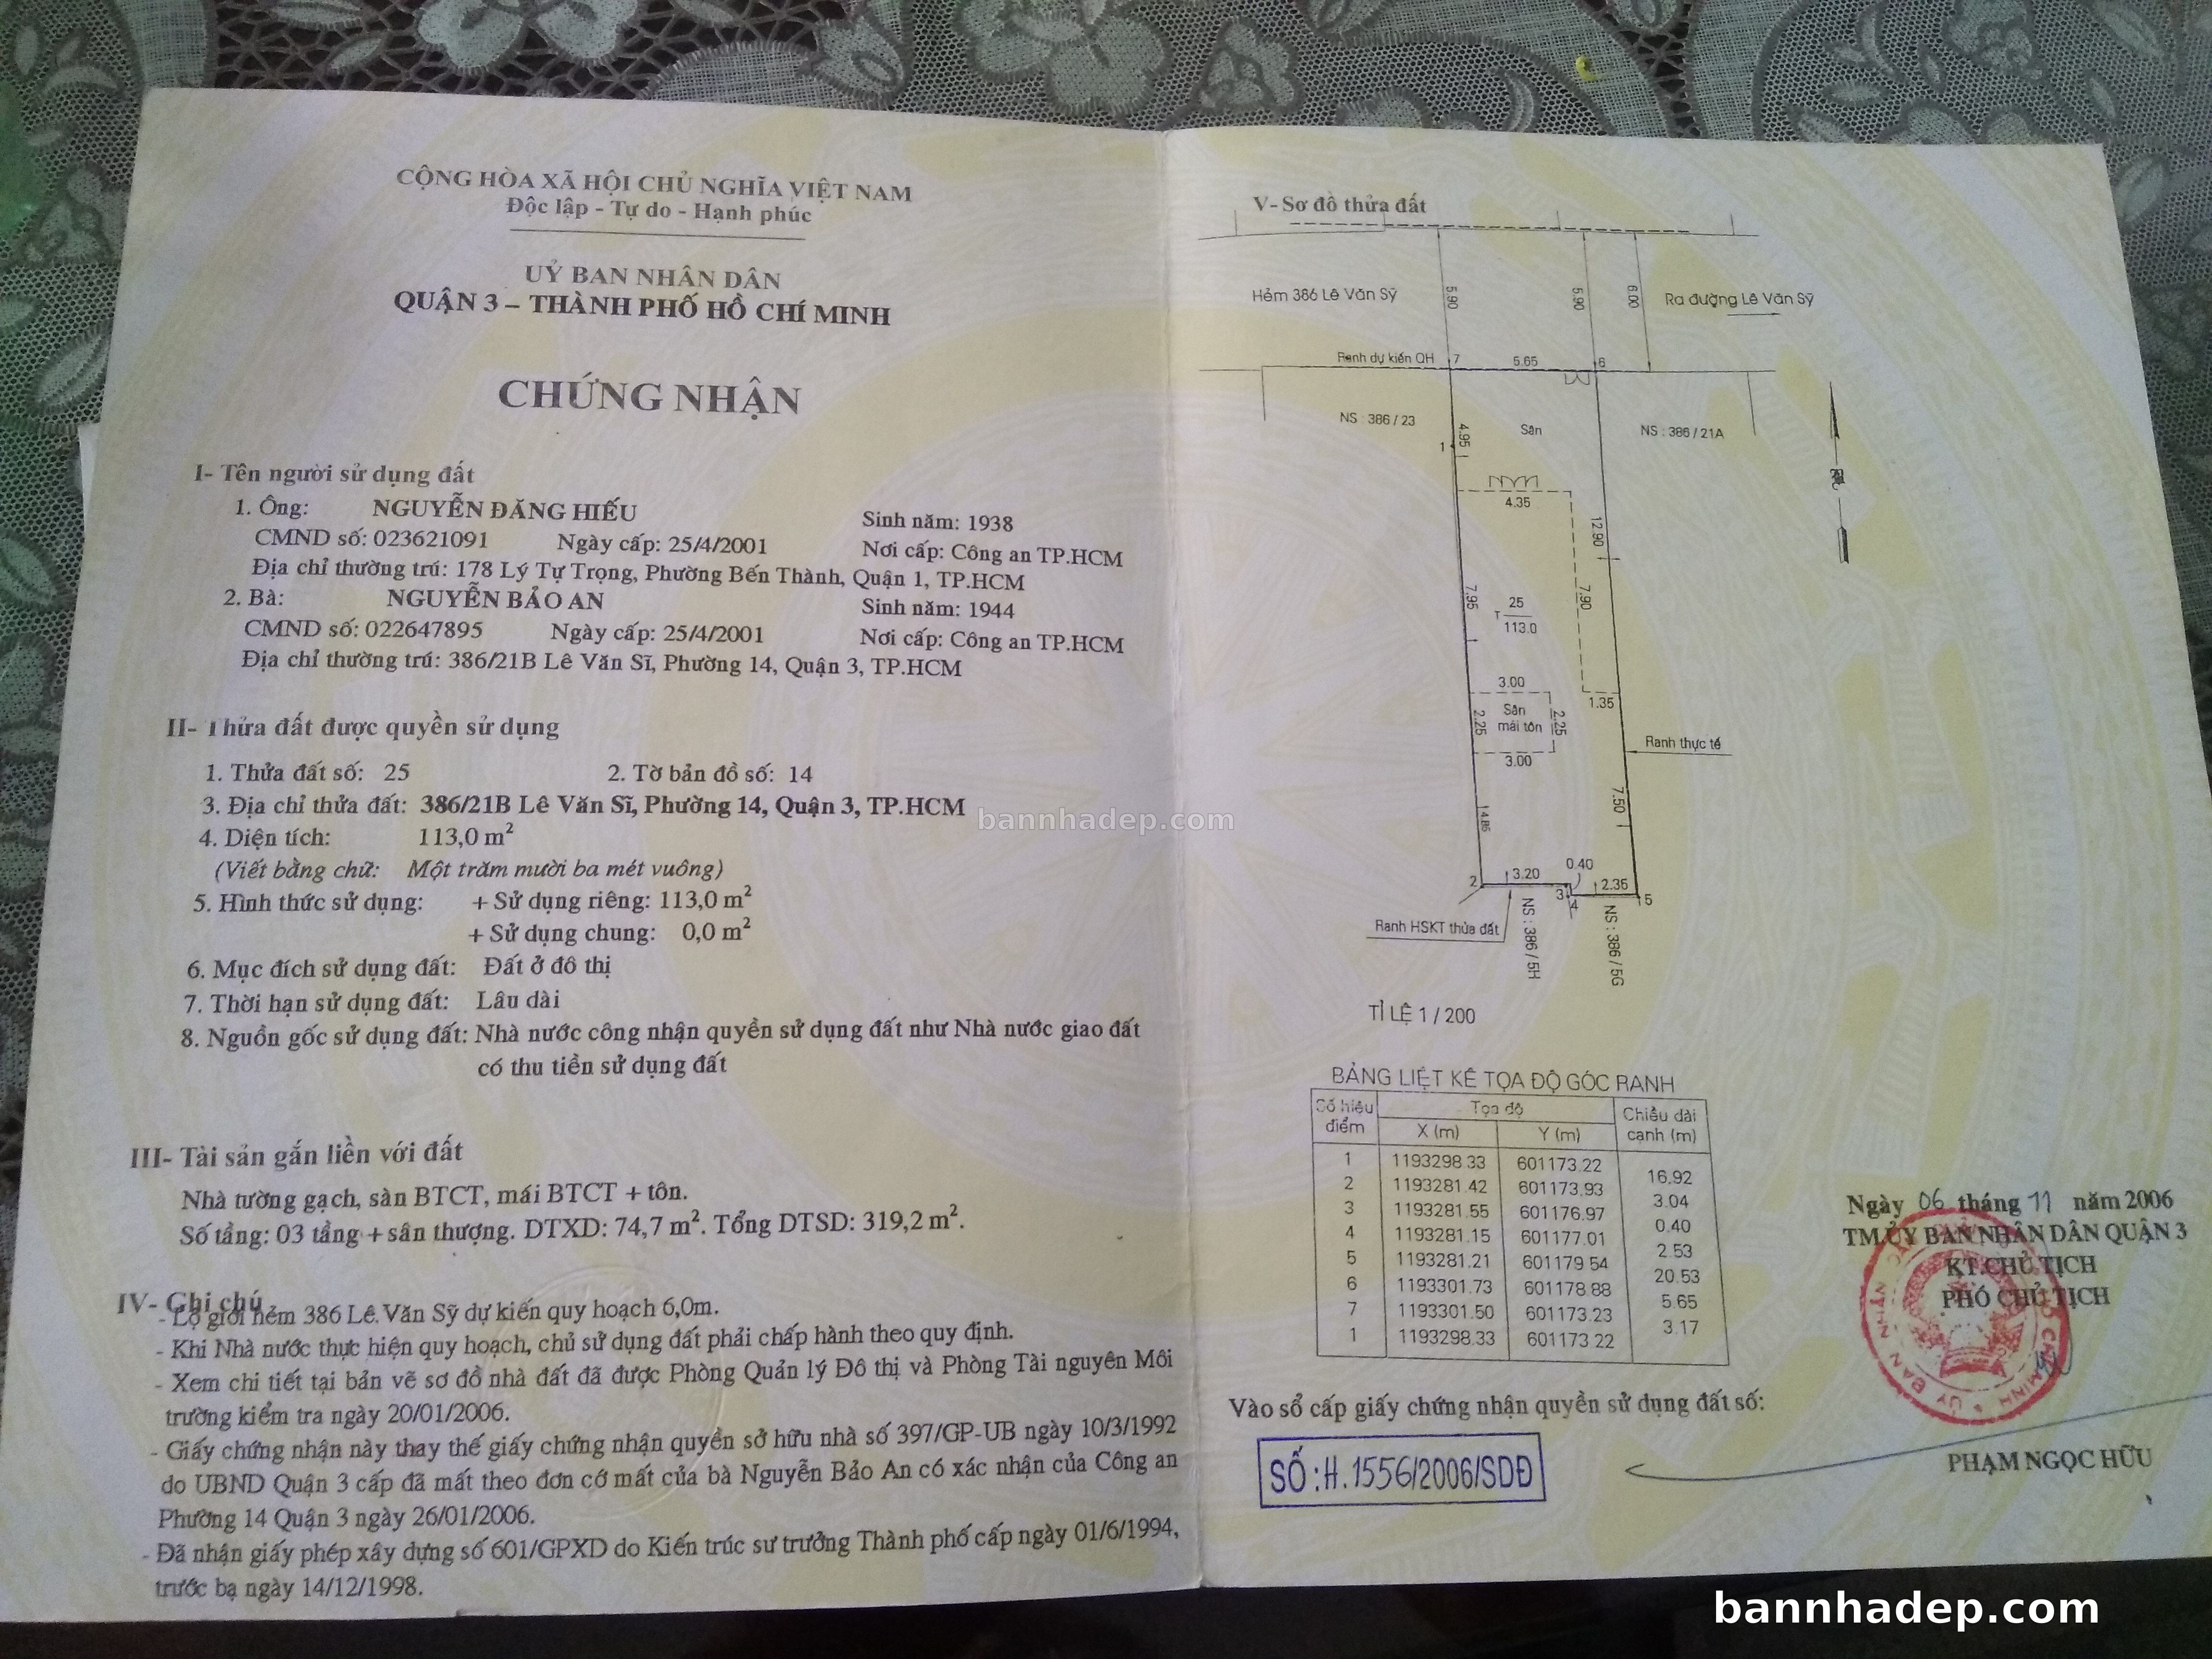 CỘNG HÒA XÃ HỘI CHỦ NGHĨA VIỆT NAM
Độc lập - Tự do - Hạnh phúc
UỶ BAN NHÂN DÂN
QUẬN 3 – THÀNH PHỐ HỒ CHÍ MINH
CHỨNG NHẬN
I- Tên người sử dụng đất
1. Ông: NGUYỄN ĐĂNG HIẾU Sinh năm: 1938
CMND số: 023621091 Ngày cấp: 25/4/2001 Nơi cấp: Công an TP.HCM
Địa chỉ thường trú: 178 Lý Tự Trọng, Phường Bến Thành, Quận 1, TP.HCM
2. Bà: NGUYỄN BẢO AN Sinh năm: 1944
CMND số: 022647895 Ngày cấp: 25/4/2001 Nơi cấp: Công an TP.HCM
Địa chỉ thường trú: 386/21B Lê Văn Sĩ, Phường 14, Quận 3, TP.HCM
II- Thửa đất được quyền sử dụng
1. Thửa đất số: 25 2. Tờ bản đồ số: 14
3. Địa chỉ thửa đất: 386/21B Lê Văn Sĩ, Phường 14, Quận 3, TP.HCM
4. Diện tích: 113,0 m²
(Viết bằng chữ: Một trăm mười ba mét vuông)
5. Hình thức sử dụng: + Sử dụng riêng: 113,0 m²
+ Sử dụng chung: 0,0 m²
6. Mục đích sử dụng đất: Đất ở đô thị
7. Thời hạn sử dụng đất: Lâu dài
8. Nguồn gốc sử dụng đất: Nhà nước công nhận quyền sử dụng đất như Nhà nước giao đất
có thu tiền sử dụng đất
III- Tài sản gắn liền với đất
Nhà tường gạch, sàn BTCT, mái BTCT + tôn.
Số tầng: 03 tầng + sân thượng. DTXD: 74,7 m². Tổng DTSD: 319,2 m².
IV- Ghi chú
- Lộ giới hẻm 386 Lê Văn Sỹ dự kiến quy hoạch 6,0m.
- Khi Nhà nước thực hiện quy hoạch, chủ sử dụng đất phải chấp hành theo quy định.
- Xem chi tiết tại bản vẽ sơ đồ nhà đất đã được Phòng Quản lý Đô thị và Phòng Tài nguyên Môi
trường kiểm tra ngày 20/01/2006.
- Giấy chứng nhận này thay thế giấy chứng nhận quyền sở hữu nhà số 397/GP-UB ngày 10/3/1992
do UBND Quận 3 cấp đã mất theo đơn cớ mất của bà Nguyễn Bảo An có xác nhận của Công an
Phường 14 Quận 3 ngày 26/01/2006.
- Đã nhận giấy phép xây dựng số 601/GPXD do Kiến trúc sư trưởng Thành phố cấp ngày 01/6/1994,
trước bạ ngày 14/12/1998.
bannhadep.com
V- Sơ đồ thửa đất
Hẻm 386 Lê Văn Sỹ 5.90 5.90 6.00 Ra đường Lê Văn Sỹ
Ranh dự kiến QH 7 5.65 6
NS : 386 / 23 4.95 Sân NS : 386 / 21A
1
4.35
12.90
7.95 25 7.90
T 113.0
3.00
1.35
2.25 Sân mái tôn 2.25
3.00
Ranh thực tế
7.50
14.85
0.40
2 3.20 3 4 2.35 5
Ranh HSKT thửa đất
NS : 386 / 5H
NS : 386 / 5G
TỈ LỆ 1 / 200
BẢNG LIỆT KÊ TỌA ĐỘ GÓC RANH
Số hiệu điểm Tọa độ Chiều dài cạnh (m)
X (m) Y (m)
1 1193298.33 601173.22
16.92
2 1193281.42 601173.93
3.04
3 1193281.55 601176.97
0.40
4 1193281.15 601177.01
2.53
5 1193281.21 601179.54
20.53
6 1193301.73 601178.88
5.65
7 1193301.50 601173.23
3.17
1 1193298.33 601173.22
Ngày 06 tháng 11 năm 2006
TM.ỦY BAN NHÂN DÂN QUẬN 3
KT.CHỦ TỊCH
PHÓ CHỦ TỊCH
PHẠM NGỌC HỮU
Vào sổ cấp giấy chứng nhận quyền sử dụng đất số:
SỐ :H.1556/2006/SDĐ
bannhadep.com